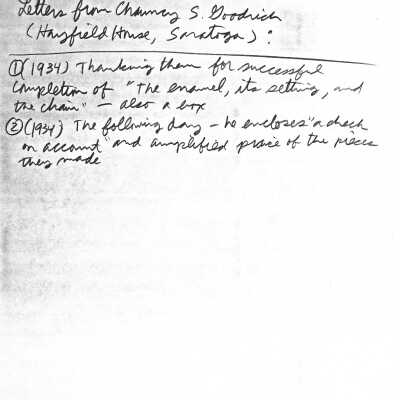 Letters from Chauncey S. Goodrich
(Hayfield House, Saratoga) :
①(1934) Thanking them for successful
completion of "the enamel, its setting, and
the chain" — also a box
②(1934) The following day — he encloses "a check
on account" and amplified praise of the pieces
they made